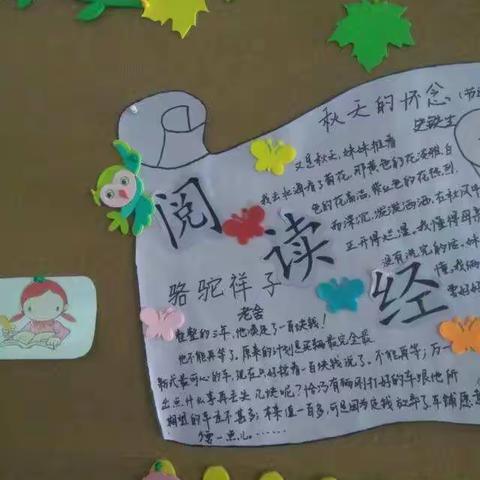 秋天的怀念（节
史铁生
又是秋天，妹妹推着
我去北海看了菊花。那黄色的花淡雅，白
色的花高洁，紫红色的花热烈
而深沉，泼泼洒洒，在秋风中
正开得烂漫。我懂得母亲
没有说完的话。妹妹
懂。我俩
要好好
阅读经
骆驼祥子
老舍
整整的三年，他凑足了一百块钱！
他不能再等了。原来的计划是买辆最完全最
新式最可心的车，现在只好按着一百块钱说了。不能再等；万一
出点什么事再丢失几块呢？恰巧有辆刚打好的车跟他所
期望的车差不甚多；本来值一百多，可是因为定钱放弃了，车铺愿意
少要一点儿……